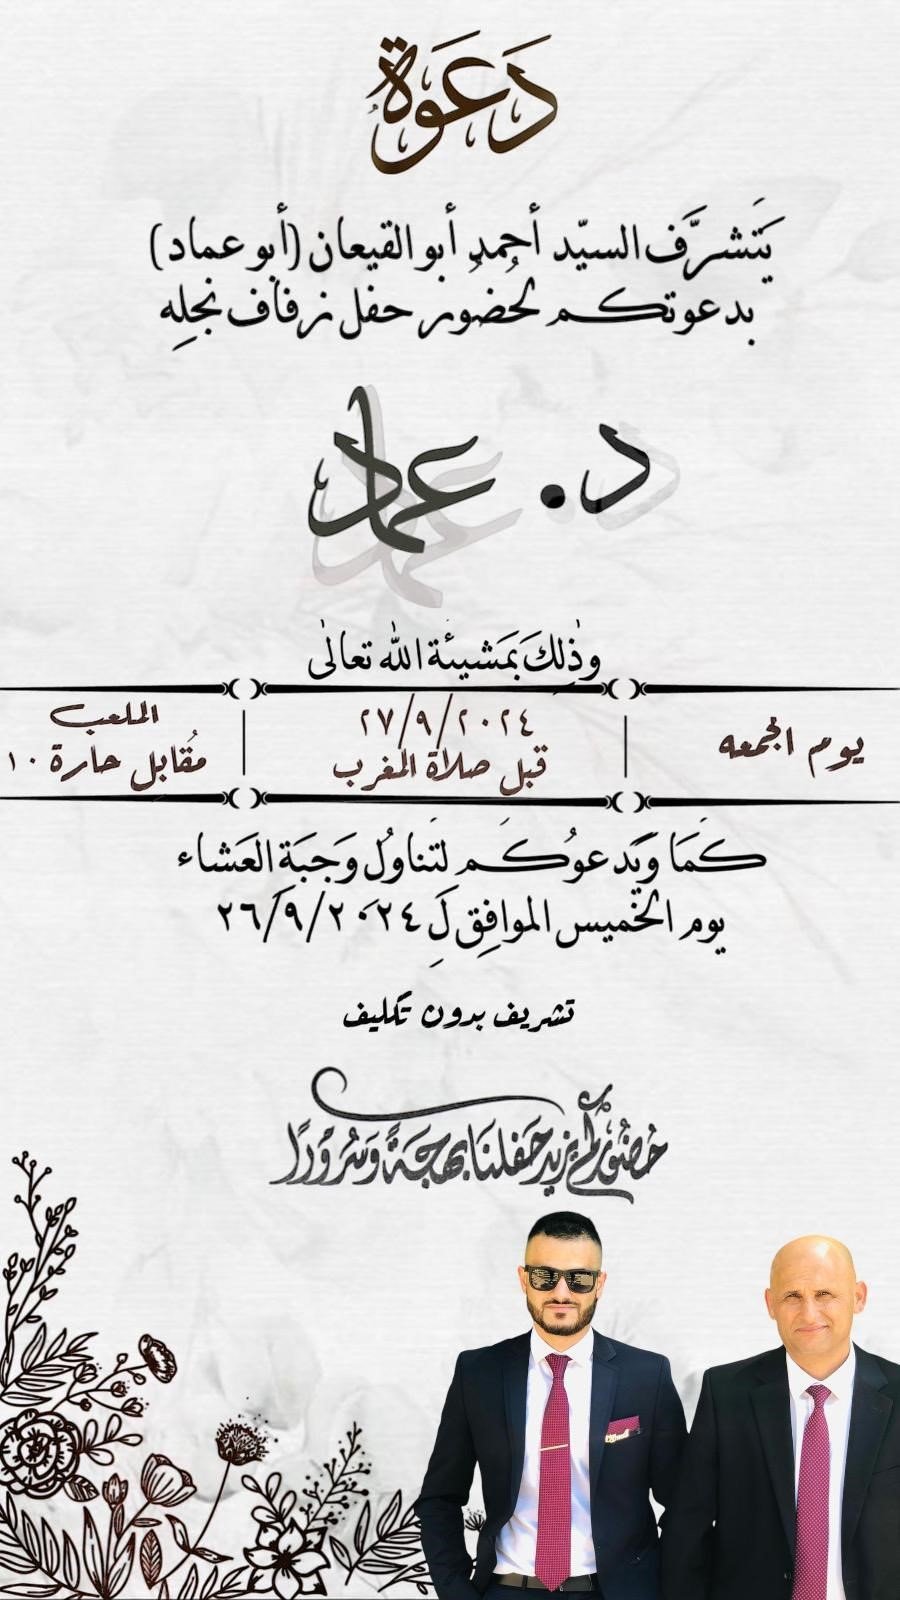 دَعَوَة
يَتَشرَّف السيّد أحمد أبو القيعان (أبو عماد)
بدعوتكم لحُضُور حفل زفاف نجلِه
د. عماد
وذٰلِكَ بمَشيئة الله تعالى
يوم الجمعه
٢٧/٩/٢٠٢٤
قبل صلاة المغرب
الملعب
مقابل حارة ١٠
كَمَا وَنَدعوُكُم لتَناولُ وَجبَة العَشاء
يوم الخميس الموافِق لِ ٢٦/٩/٢٠٢٤
تشريف بدون تكليف
حُضُوركُم يزيد حَفلنَا بهجَةً وَسُرُوْرًا